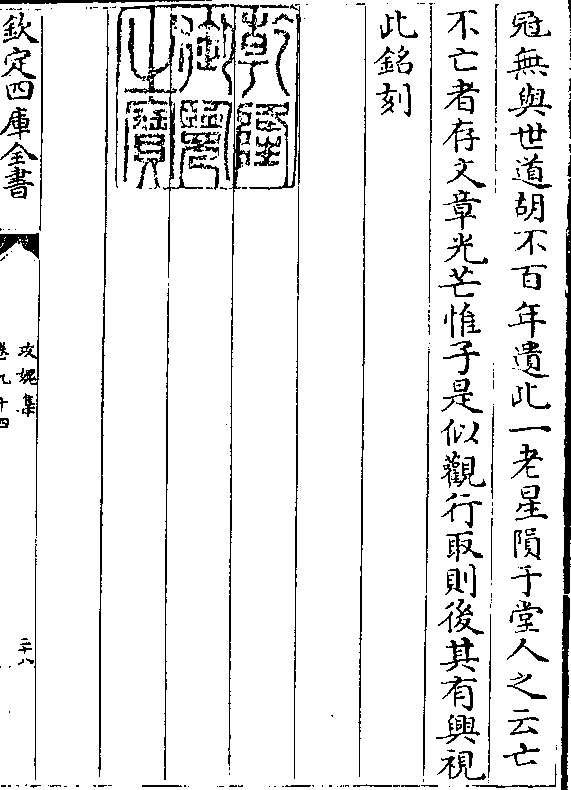 冠無與世道胡不百年遺此一老星隕于堂人之云亡
不亡者存文章光芒惟子是似觀行取則後其有興視
此銘刻
乾隆御覽之寶
欽定四庫全書
攻媿集
卷九十四
二十八